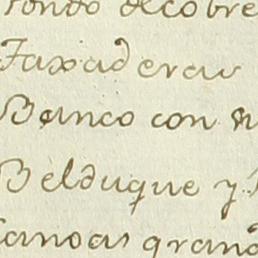 fondo de cobre
Taxaderas
Banco con
Belduque y
Canoas grand